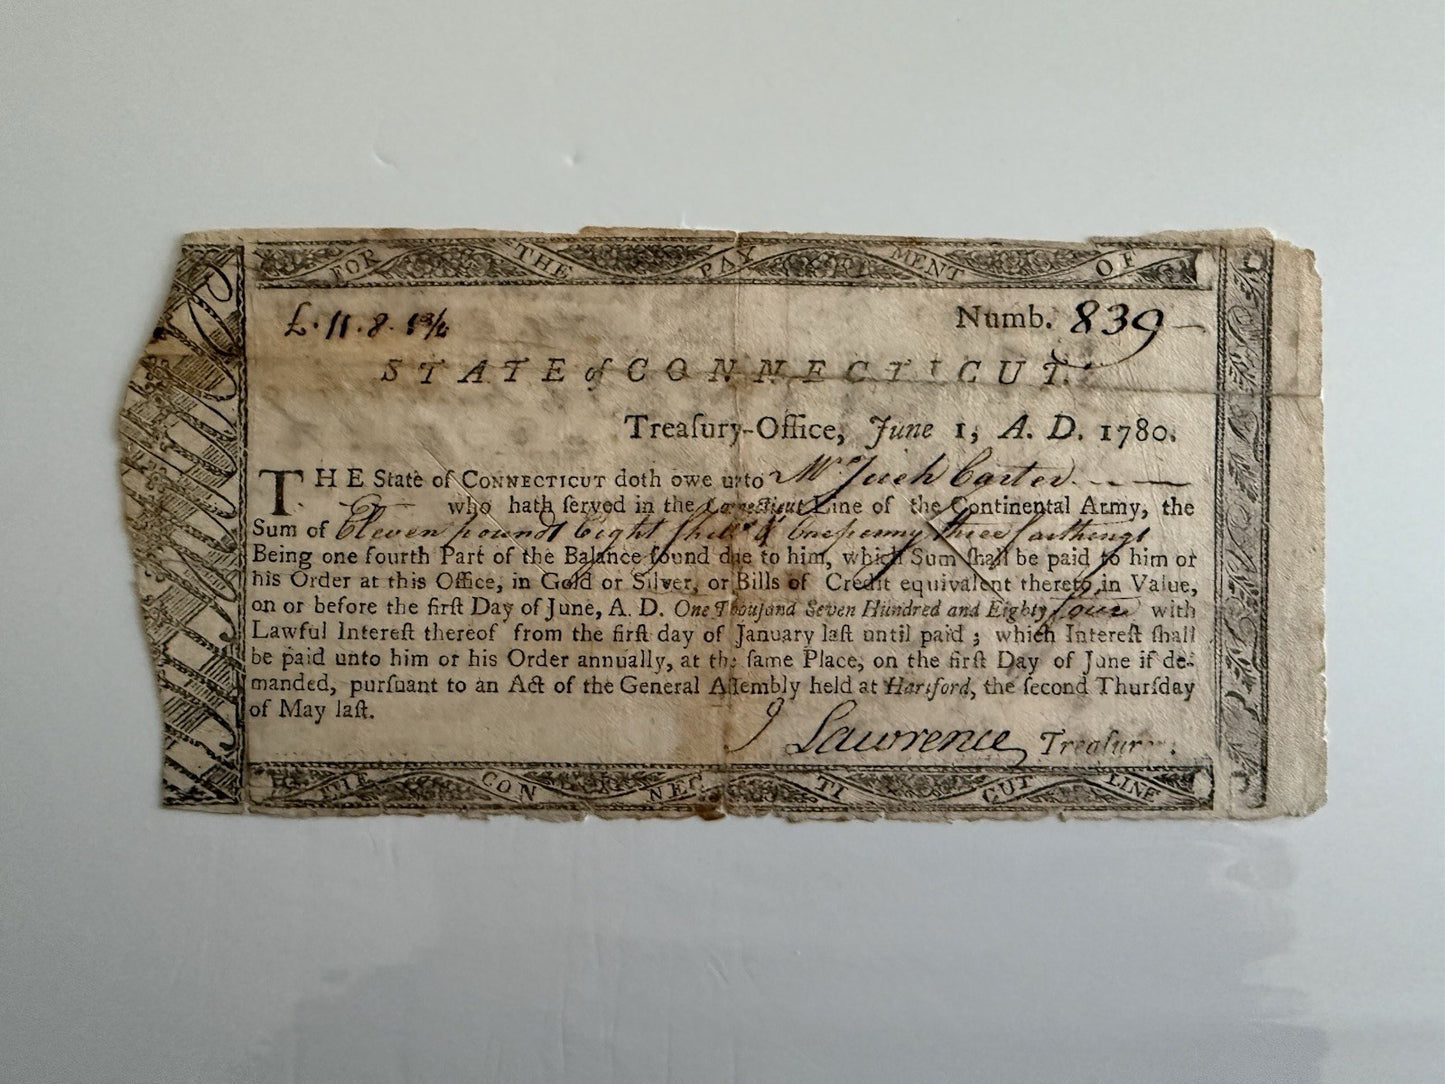 FOR THE PAY MENT OF
£.11.8.1¾
Numb. 839
STATE of CONNECTICUT.
Treaſury-Office, June 1, A. D. 1780.
THE State of CONNECTICUT doth owe unto Mr. Carter
who hath ſerved in the Connecticut Line of the Continental Army, the
Sum of Eleven pounds Eight ſhills & One penny three farthings
Being one fourth Part of the Balance found due to him, which Sum ſhall be paid to him or
his Order at this Office, in Gold or Silver, or Bills of Credit equivalent thereto in Value,
on or before the firſt Day of June, A. D. One Thouſand Seven Hundred and Eighty four with
Lawful Intereſt thereof from the firſt day of January laſt until paid ; which Intereſt ſhall
be paid unto him or his Order annually, at the ſame Place, on the firſt Day of June if de-
manded, purſuant to an Act of the General Aſſembly held at Hartford, the ſecond Thurſday
of May laſt.
J Lawrence Treaſurer.
THE CON NEC TI CUT LINE